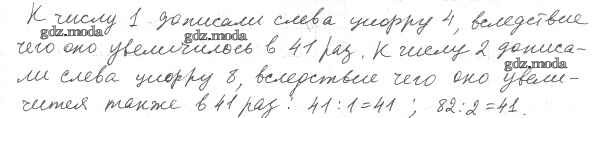 К числу 1 дописали слева цифру 4, вследствие
gdz.moda
gdz.moda
чего оно увеличилось в 41 раз. К числу 2 дописа-
gdz.moda
ли слева цифру 8, вследствие чего оно увели-
чится также в 41 раз: 41:1=41; 82:2=41.
gdz.moda
gdz.moda